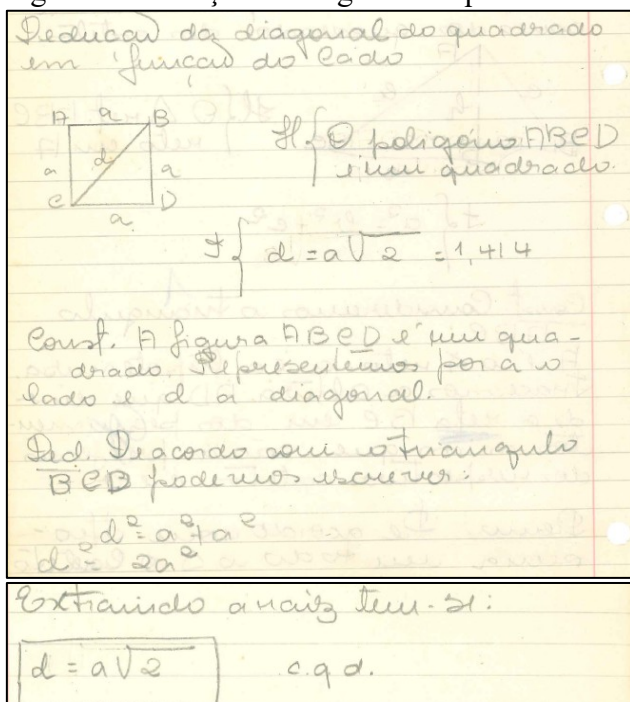 Deducaū da diagonal do quadrado
em funcaū do lado
A a B
a d a
C D
a
H { O poligono ABCD
é um quadrado.
T { d = a√2 = 1,414
Const. A figura ABCD é um qua-
drado. Representemos por a o
lado e d a diagonal.
Ded. De acordo com o triangulo
BCD podemos escrever:
d² = a² + a²
d² = 2a²
Extraindo a raiz tem-se:
d = a√2 c.q d.